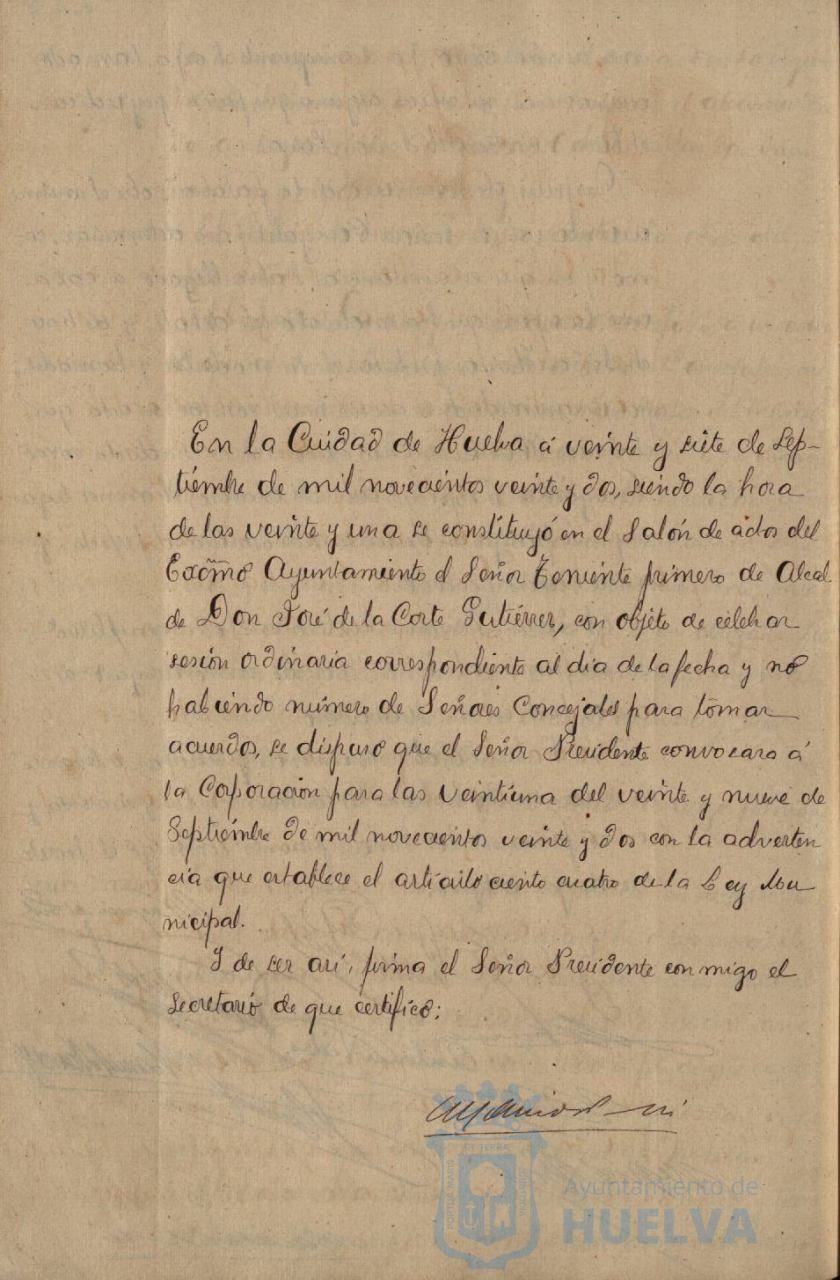 En la Ciudad de Huelva á veinte y siete de Sep-
tiembre de mil novecientos veinte y dos, siendo la hora
de las veinte y una se constituyó en el Salón de actos del
Excmo Ayuntamiento el Señor Teniente primero de Alcal
de Don José de la Corte Gutiérrez, con objeto de celebrar
sesión ordinaria correspondiente al dia de la fecha y no
habiendo número de Señores Concejales para tomar
acuerdos, se dispuso que el Señor Presidente convocara á
la Corporación para las veintiuna del veinte y nueve de
Septiembre de mil novecientos veinte y dos con la adverten
cia que establece el artículo ciento cuatro de la Ley Mu
nicipal.
Y de ser así, firma el Señor Presidente conmigo el
Secretario de que certifico:
Ayuntamiento de
HUELVA